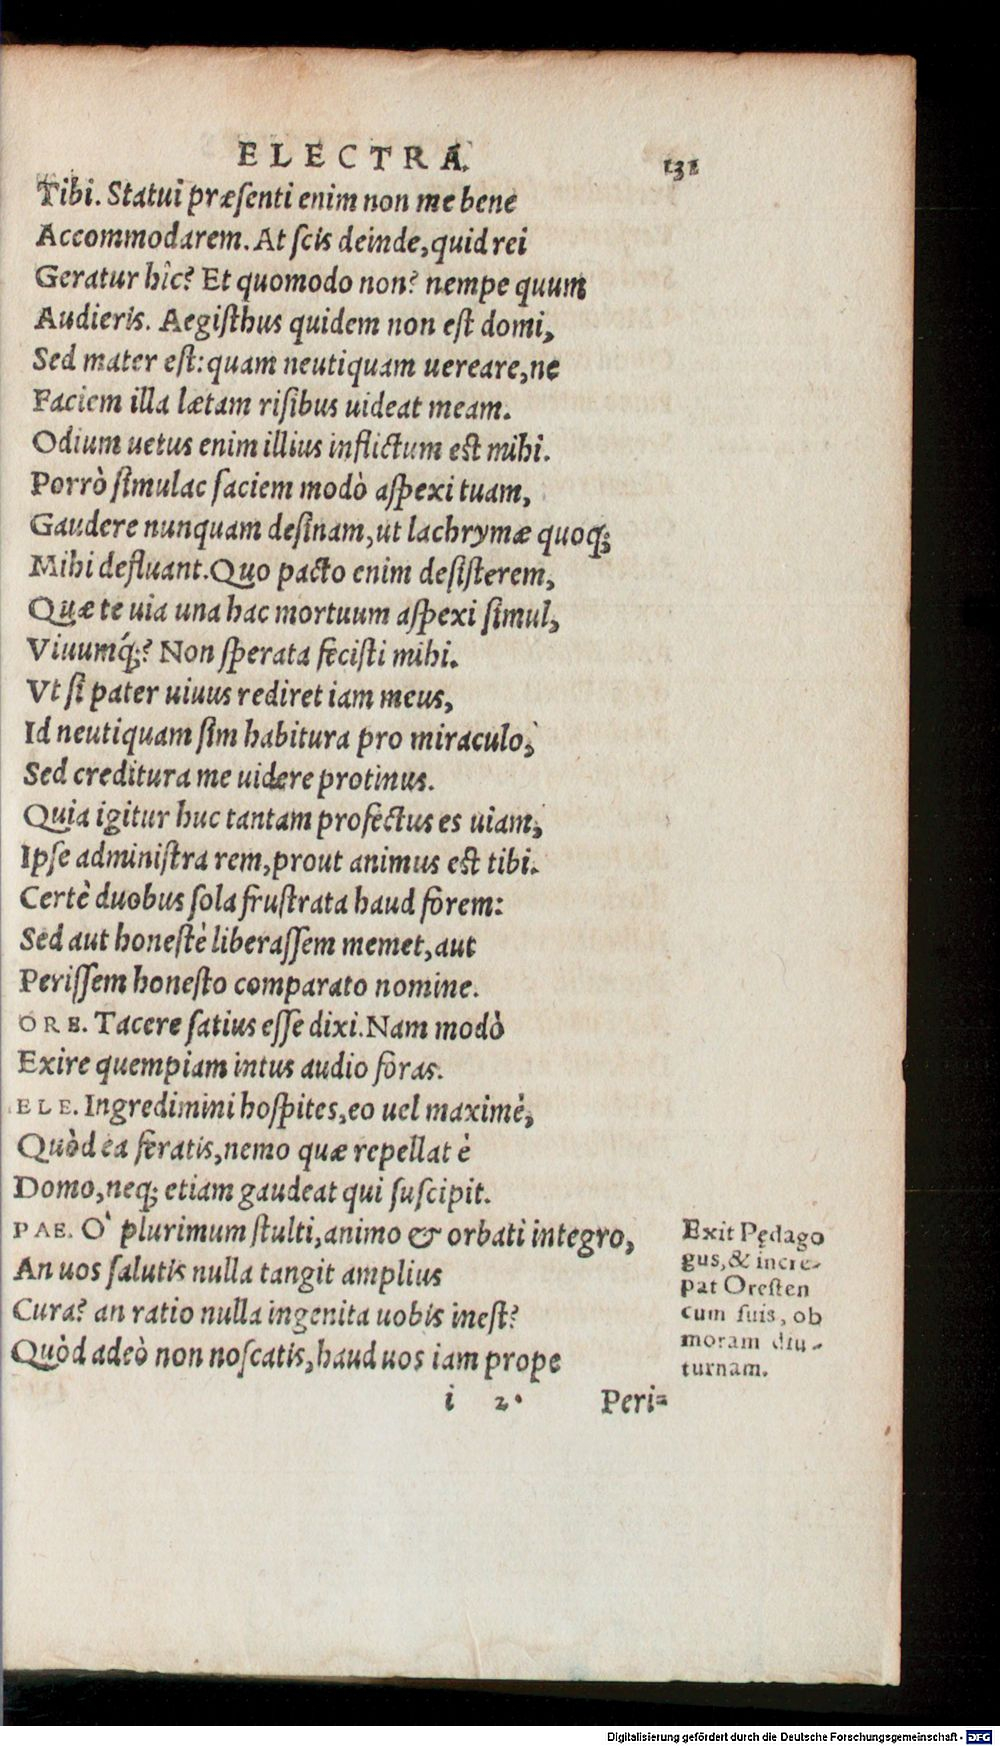 ELECTRA. 131
Tibi. Statui præſenti enim non me bene
Accommodarem. At ſcis deinde, quid rei
Geratur hîc? Et quomodo non? nempe quum
Audieris. Aegiſthus quidem non eſt domi,
Sed mater eſt: quam neutiquam uereare, ne
Faciem illa lætam riſibus uideat meam.
Odium uetus enim illius inflictum eſt mihi.
Porrò ſimulac faciem modò aſpexi tuam,
Gaudere nunquam deſinam, ut lachrymæ quoq;
Mihi defluant. Quo pacto enim deſiſterem,
Quæ te uia una hac mortuum aſpexi ſimul,
Viuumq́;? Non ſperata feciſti mihi.
Vt ſi pater uiuus rediret iam meus,
Id neutiquam ſim habitura pro miraculo,
Sed creditura me uidere protinus.
Quia igitur huc tantam profectus es uiam,
Ipſe adminiſtra rem, prout animus eſt tibi.
Certè duobus ſola fruſtrata haud forem:
Sed aut honeſtè liberaſſem memet, aut
Periſſem honeſto comparato nomine.
ORE. Tacere ſatius eſſe dixi. Nam modò
Exire quempiam intus audio foras.
ELE. Ingredimini hoſpites, eo uel maximè,
Quòd ea feratis, nemo quæ repellat è
Domo, neq; etiam gaudeat qui ſuſcipit.
PAE. O` plurimum ſtulti, animo & orbati integro,
An uos ſalutis nulla tangit amplius
Cura? an ratio nulla ingenita uobis ineſt?
Quòd adeò non noſcatis, haud uos iam prope
Exit Pędago
gus, & incre-
pat Oreſten
cum ſuis, ob
moram diu-
turnam.
i 2. Peri-
Digitalisierung gefördert durch die Deutsche Forschungsgemeinschaft - DFG